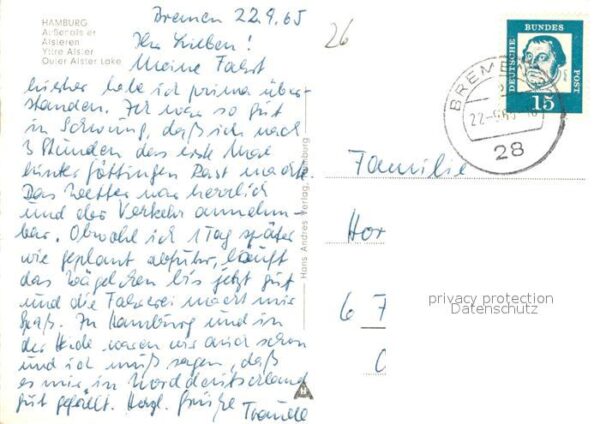 HAMBURG
Außenalster
Alsteren
Yttre Alster
Outer Alster Lake
Bremen 22.9.65
Ihr Lieben!
Meine Fahrt
bisher habe ich prima über-
standen. Ich war so gut
in Schwung, daß ich nach
3 Stunden das erste Mal
hinter Göttingen Rast machte.
Das Wetter war herrlich
und der Verkehr annehm-
bar. Obwohl ich 1 Tag später
wie geplant abfuhr, läuft
das Wägelchen bis jetzt gut
und die Fahrerei macht mir
Spaß. In Hamburg und in
der Heide waren wir auch schon
und ich muß sagen, daß
es mir in Norddeutschland
gut gefällt. Herzl. Grüße
Traudl
Hans Andres Verlag, Hamburg
26
DEUTSCHE BUNDES POST
15
BREMEN
28
Familie
Hor
6 7
privacy protection
Datenschutz